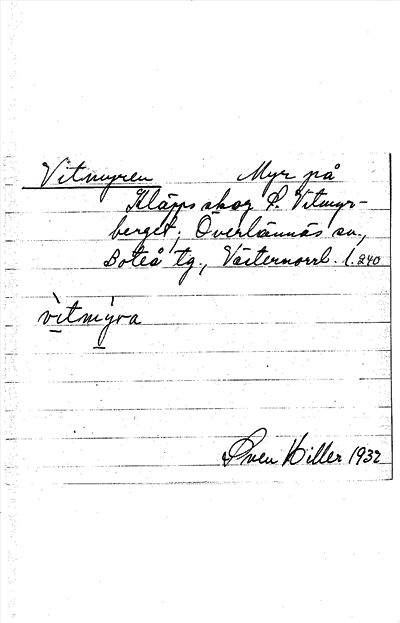 Vitmyren Myr på
Kläpps skog S. Vitmyr-
berget; Överlännäs sn,
Boteå tg., Västernorrl. l. 240
vitmyra
Sven Hiller 1932